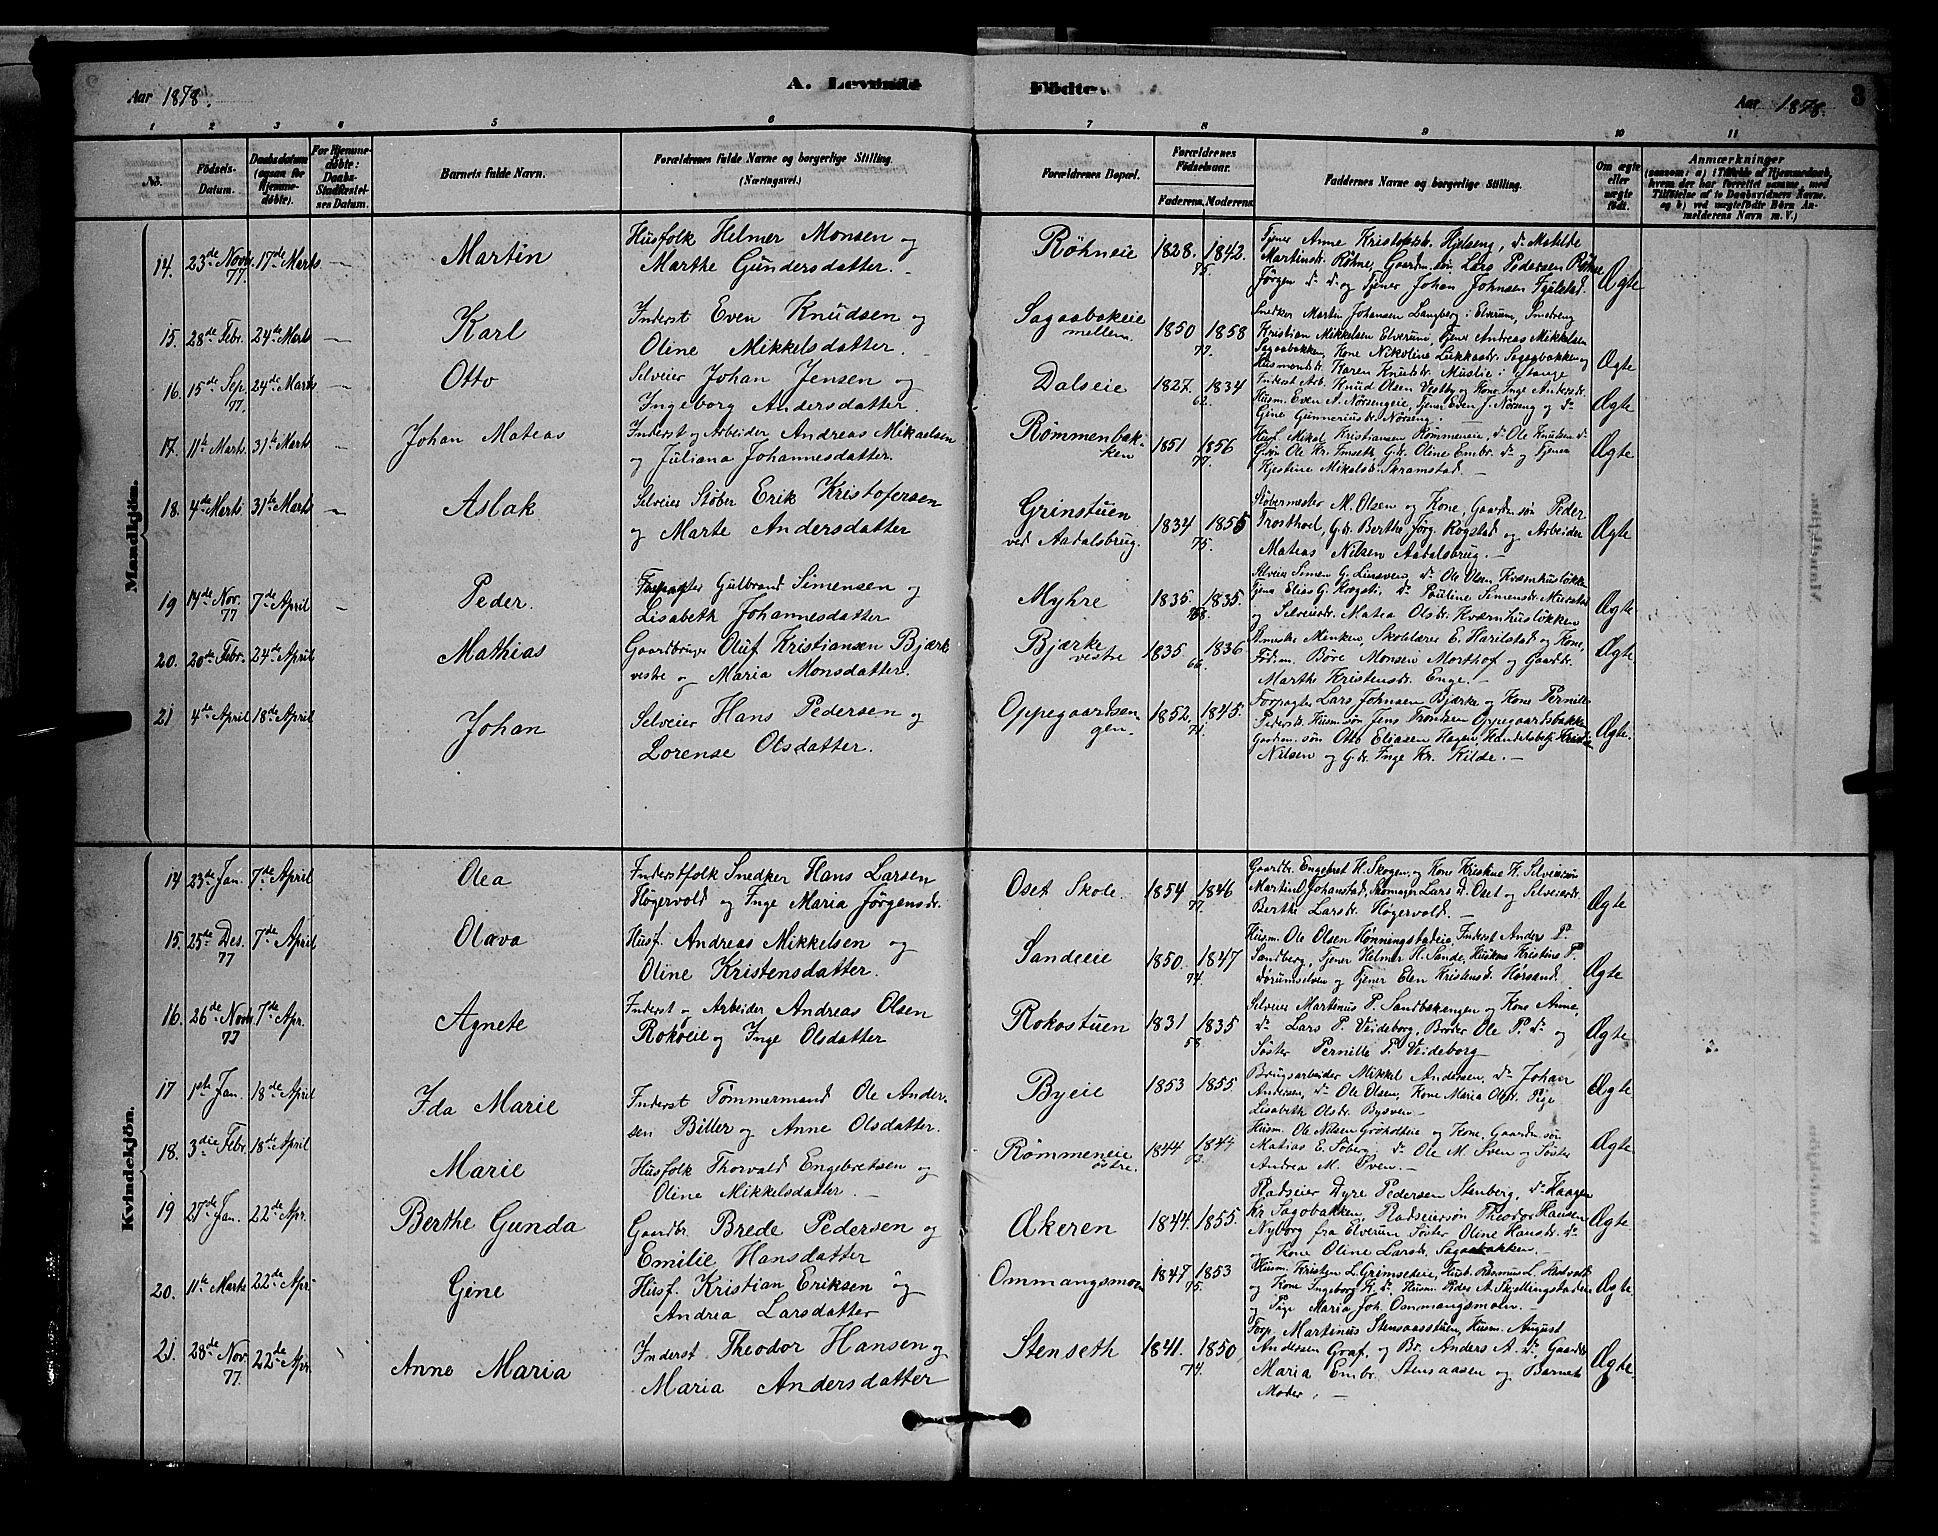 Aar 1878.
A. Levende
Födte.
Aar 1878.
3
1 2 3 4 5 6 7 8 9 10 11
No.
Födsels-
Datum.
Daabsdatum
(ogsaa for
Hjemme-
döbte).
For Hjemme-
döbte:
Daabs-
Stadfæstel-
ses Datum.
Barnets fulde Navn.
Forældrenes fulde Navne og borgerlige Stilling.
(Næringsvei.)
Forældrenes Bopæl.
Forældrenes
Födselsaar.
Faderens. Moderens.
Faddernes Navne og borgerlige Stilling.
Om ægte
eller
uægte
födt.
Anmærkninger
(saasom: a) i Tilfælde af Hjemmedaab,
hvem der har forrettet samme, med
Tilföielse af to Daabsvidners Navne,
og b) ved uægtefödte Börn An-
melderens Navn m. V.)
Mandkjön.
14. 23de Novr. 77. 17de Marts — Martin
Husfolk Helmer Monsen og
Marthe Gundersdatter.
Röhneie 1828. 1842. 75.
Tjener Anne Kristofsdr. Hjelseng, do Matilde
Martinsdr. Röhne, Gaardm.sön Lars Pedersen Röhne
Jörgen do do og Tjener Johan Johnsen Fjulstad.
Ægte
15. 28de Febr. 24de Marts — Karl
Inderst Even Knudsen og
Oline Mikkelsdatter.
Sagaabakeie
mellem 1850 1858 77.
Snedker Martin Johansen Langberg i Elverum, Smedreng
Kristian Mikkelsen Elverum, Tjener Andreas Mikkelsen
Sagaabakken, Kone Nikoline Lukkasdr. Sagaabakken og
Husmandsdr. Karen Knutsdr. Muslie i Stange
Ægte
16. 15de Sep. 77. 24de Marts — Otto
Selveier Johan Jensen og
Ingeborg Andersdatter.
Dalseie 1827. 1834 62.
Inderst Arb. Knud Olsen Vestby og Kone Inge Andersdr.
Husm. Even A. Nörsengeie, Tjener Even J. Nörseng og do
Gine Gunneriusdr. Nörseng.
Ægte
17. 11te Marts. 31te Marts — Johan Mateas
Inderst og Arbeider Andreas Mikaelsen
og Juliana Johannesdatter.
Römmenbak-
ken 1851 1856 77.
Husf. Mikal Kristiansen Römmeneie, do Ole Knudsen do
Gdsön Ole Kr. Imseth G.dr. Oline Embr. do og Tjener
Kjestine Mikalsdr. Skramstad.
Ægte
18. 4de Marts 31te Marts — Aslak
Selveier Stöber Erik Kristofersen
og Marte Andersdatter
Grinstuen
ved Aadalsbrug. 1834 1855 75.
Stöbermester M. Olsen og Kone, Gaardm.sön Peder
Trosthoel, G.dr. Berthe Jörg. Rogstad og Arbeider
Mateas Nilsen Aadalsbrug.
Ægte
19 14de Nov. 77 7de April — Peder.
Forpagter Gulbrand Simensen og
Lisabeth Johannesdatter
Myhre 1835. 1835.
Selveier Simen G. Linsveen do Ole Olsen Kværnhuslökken
Tjener Elias G. Krogsti, do Pauline Simensdr. Mierstad
og Selveierdr. Matea Olsdr. Kværnhuslökken
Ægte
20. 20de Febr. 24de April Mathias
Gaardbruger Oluf Kristiansen Bjærke
vestre og Maria Monsdatter.
Bjærke
vestre 1835. 1836 66.
Skolelærer E. Harilstad og Kone,
Födm. Böre Monsen Morthof og Gaardr.
Marthe Kristensdr. Enge.
Ægte
21 4de April 18de April Johan
Selveier Hans Pedersen og
Lorense Olsdatter.
Oppegaardsen-
gen. 1852. 1845. 71.
Forpagter Lars Johnsen Bjærke og Kone Pernille
Pedersdr. Husm.sön Jens Trondsen Oppegaardsbakken
Gaardm. sön Otto Eliasen Hagen, Handelsbetj. Kristian
Nilsen og G.dr. Inge Kr. Kilde.
Ægte.
Kvindekjön.
14 23de Jan. 7de April Olea
Inderstfolk Snedker Hans Larsen
Högervold og Inge Maria Jörgensdr.
Oset Skole. 1854 1846 77.
Gaardbr. Engebret H. Skogen og Kone Kristine H. Selveiersön
Martin Johanstad, Skomager Lars do Oset og Selveierdr.
Berthe Larsdr. Högervold.
Ægte
15. 25de Des. 77 7de April Olava
Husf. Andreas Mikkelsen og
Oline Kristensdatter.
Sandeeie 1850. 1847 74.
Husm. Ole Olsen Hönningstadeie, Inderst Anders P.
Sandberg, Tjener Helmer H. Sande, Huskone Kristine P.
Dörumselven og Tjener Elen Kristensd. Hörsand.
Ægte
16. 26de Novr. 77 7de Apr. Agnete
Inderst og Arbeider Andreas Olsen
Rokoeie og Inge Olsdatter
Rokostuen 1831 1835 58
Selveier Martinus P. Sandbakengen og Kone Anne,
do Lars P. Veideborg, Broder Ole P. do og
Söster Pernille P. Veideborg
Ægte
17 1ste Jan. 18de April Ida Marie
Inderst Tömmermand Ole Ander-
sen Biller og Anne Olsdatter.
Byeie 1853 1855
Brugsarbeider Mikkel Andersen, do Johan
Andersen, do Ole Olsen, Kone Maria Olsdr. Pige
Lisabeth Olsdr. Bysven
Ægte
18. 3die Febr. 18de April Marie
Husfolk Thorvald Engebretsen og
Oline Mikkelsdatter.
Römmeneie
östre. 1844 1844
Husm. Ole Nilsen Gröholteie og Kone, Gaardm.sön
Matias E. Söberg, do Ole M. Sven og Söster
Andrea M. Sven.
Ægte
19 27de Jan. 22de Apr. Berthe Gunda
Gaardbr. Brede Pedersen og
Emilie Hansdatter
Akeren 1844. 1855.
Pladseier Dyre Pedersen Stenberg, do Haagen
Kr. Sagobakken, Pladseiersön Theodor Hansen
Nyborg fra Elverum Söster Oline Hansdr. do
og Kone Oline Larsdr. Sagaabakken.
Ægte
20. 11te Marts 22de Apr. Gine
Husf. Kristian Eriksen og
Andrea Larsdatter
Ommangsmoen 1847 1853 75.
Husm. Kristen L. Grimsedeie, Husb. Rasmus L.
og Kone Ingeborg K. do Husm. Peder A. Skyllingstaden
og Pige Maria Joh. Ommangsmoen.
Ægte
21. 28de Nov. 77. 22de Apr. Anne Maria
Inderst Theodor Hansen og
Maria Andersdatter
Stenseth 1841. 1850 74.
Forp. Martinus Stensaasstuen, Husm. August
Andersen Graf, og Br. Anders A. do, Gaardr.
Maria Embr. Stensaasen og Barnets
Moder.
Ægte